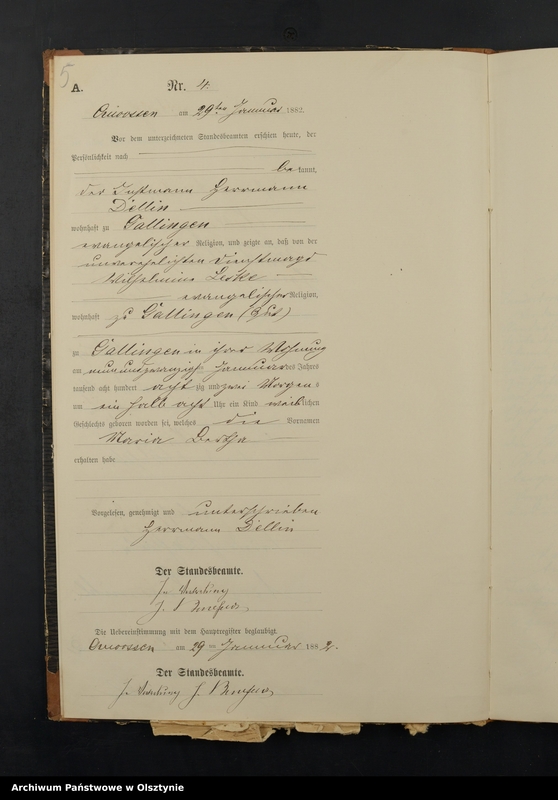 5
A.
Nr. 4.
am 29ten Januar 1882.
Vor dem unterzeichneten Standesbeamten erschien heute, der
Persönlichkeit nach
bekannt,
der Instmann Herrmann
Dellin
wohnhaft zu Gallingen
evangelischer Religion, und zeigte an, daß von der
unverehelichten Dienstmagd
Wilhelmine Leske
evangelischer Religion,
wohnhaft zu Gallingen (Gut)
zu Gallingen in ihrer Wohnung
am neunundzwanzigsten Januar des Jahres
tausend acht hundert achtzig und zwei Morgens
um ein halb acht Uhr ein Kind weiblichen
Geschlechts geboren worden sei, welches die Vornamen
Maria Bertha
erhalten habe
Vorgelesen, genehmigt und unterschrieben
Herrmann Dellin
Der Standesbeamte.
In Vertretung
Die Uebereinstimmung mit dem Hauptregister beglaubigt.
am 29ten Januar 1882.
Der Standesbeamte.
In Vertretung
Archiwum Państwowe w Olsztynie